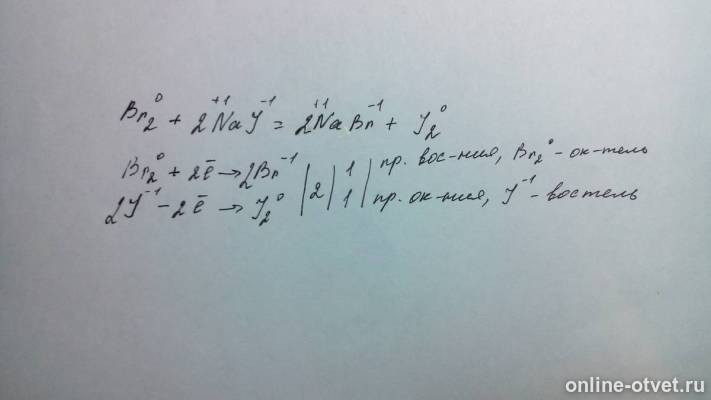 Br₂⁰ + 2Na⁺¹J⁻¹ = 2Na⁺¹Br⁻¹ + J₂⁰
Br₂⁰ + 2ē → 2Br⁻¹ | 2 | 1 | пр. вос-ния, Br₂⁰ - ок-тель
2J⁻¹ - 2ē → J₂⁰ | 1 | пр. ок-ния, J⁻¹ - востель
online-otvet.ru